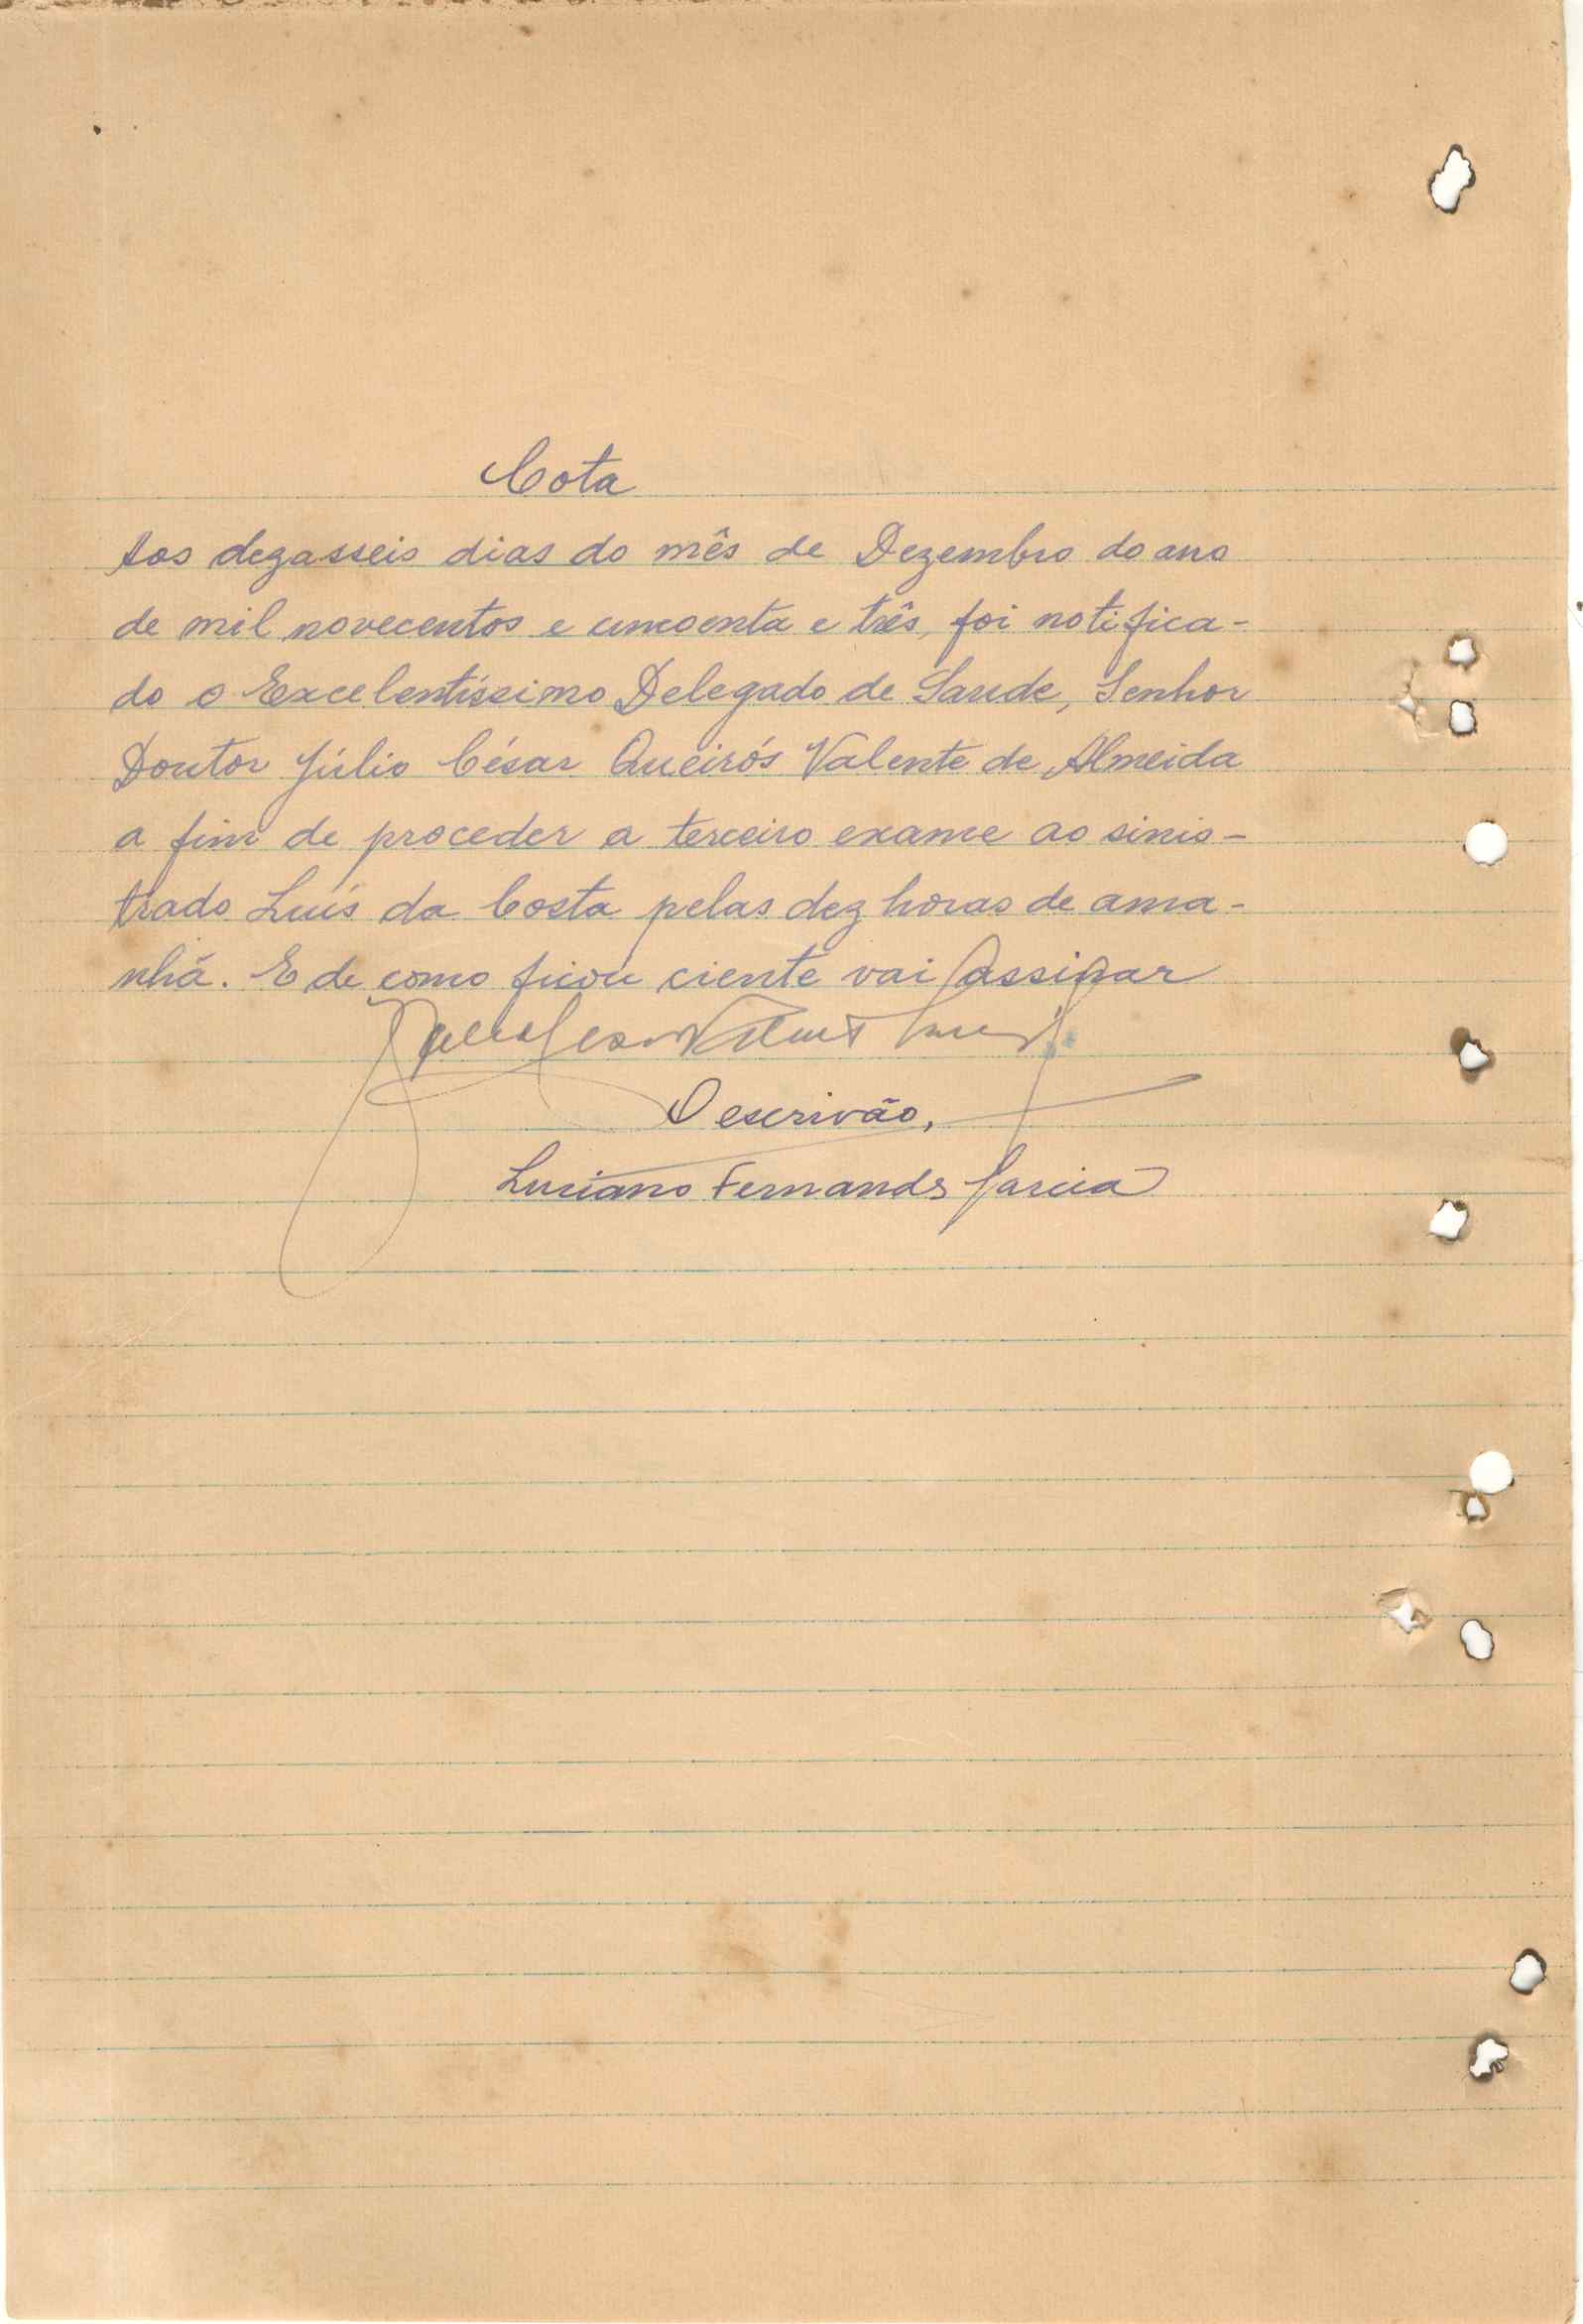 Cota
Aos dezasseis dias do mês de Dezembro do ano
de mil novecentos e cincoenta e três, foi notifica-
do o Excelentíssimo Delegado de Saude, Senhor
Doutor Júlio César Queirós Valente de Almeida
a fim de proceder a terceiro exame ao sinis-
trado Luís da Costa pelas dez horas de ama-
nhã. E de como ficou ciente vai assinar
O escrivão,
Luciano Fernands Garcia